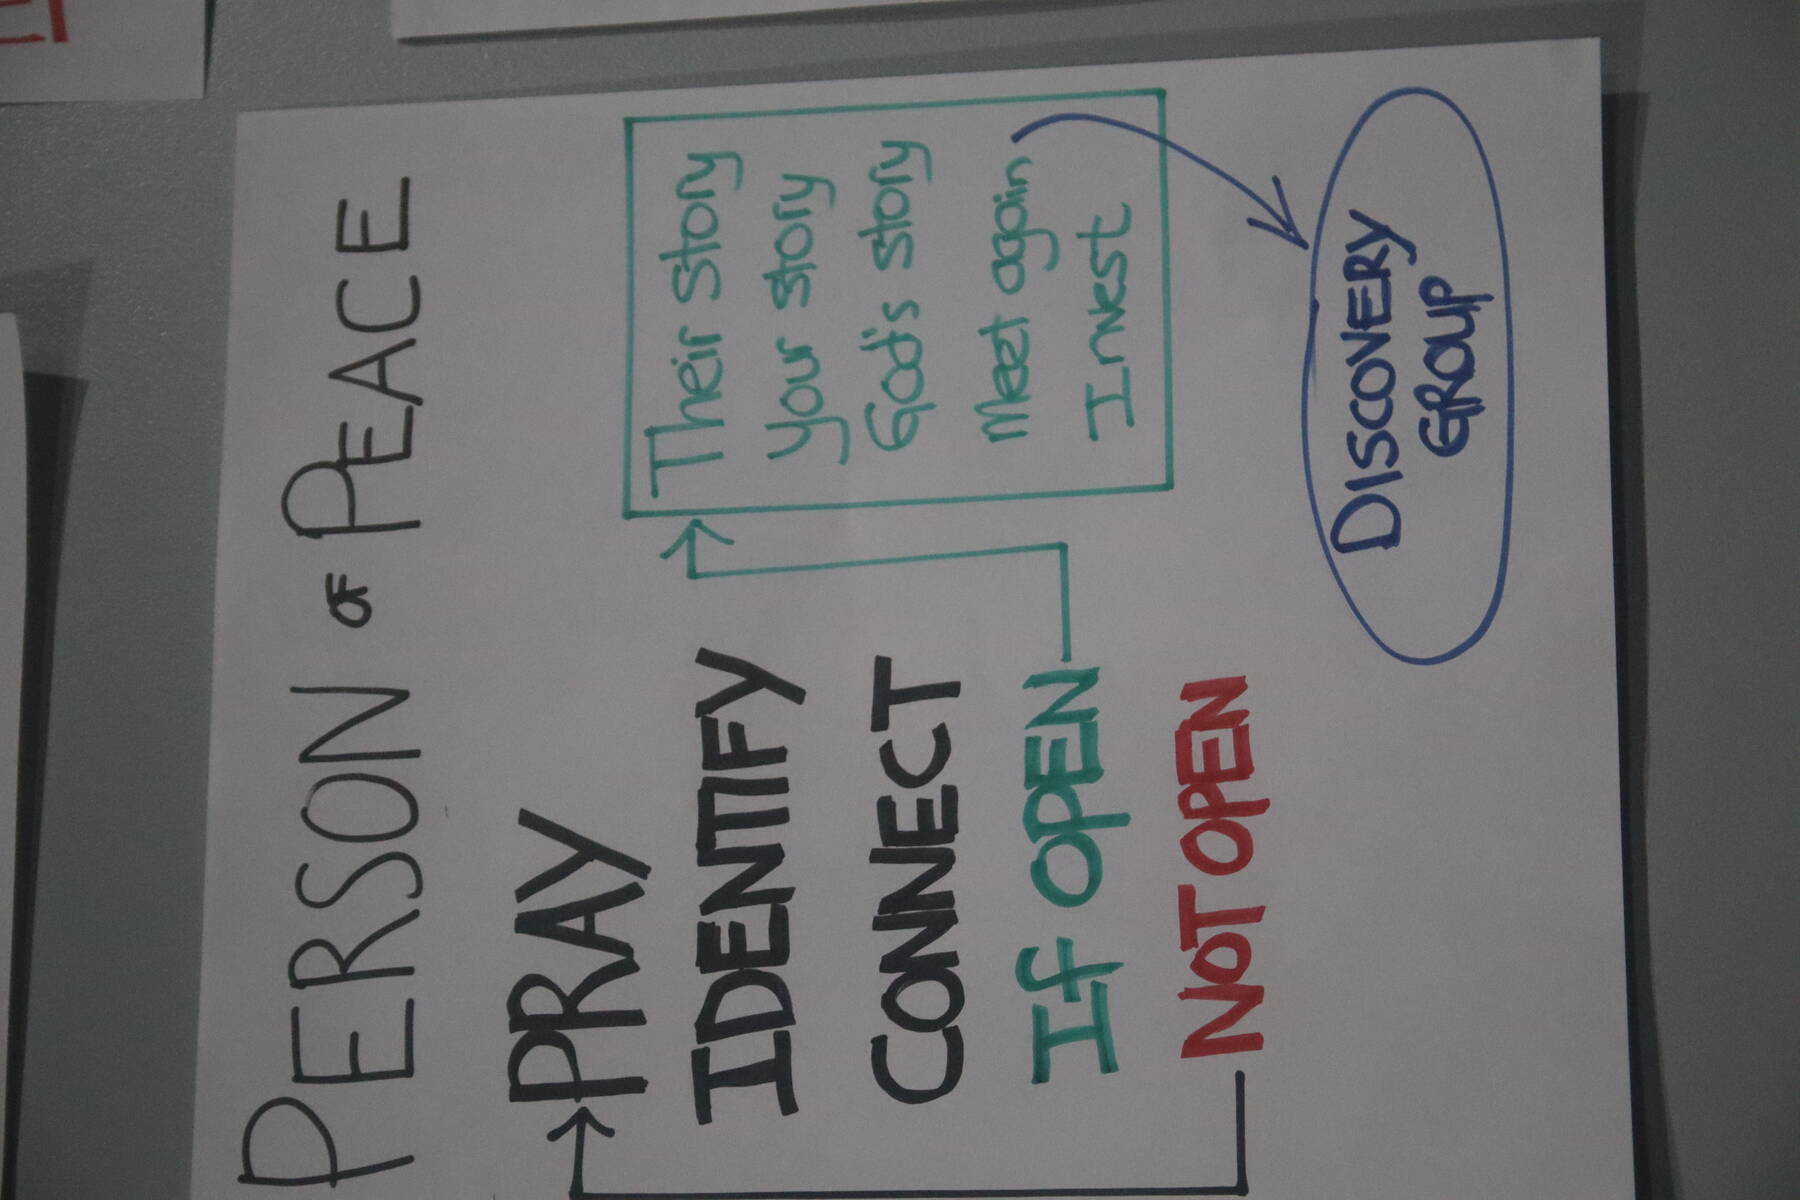 PERSON OF PEACE
PRAY
IDENTIFY
CONNECT
If OPEN
NOT OPEN
Their story
your story
God's story
Meet again
Invest
DISCOVERY
GROUP